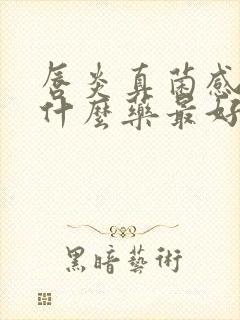 唇炎真菌感
什麼藥最好
黑暗藝術